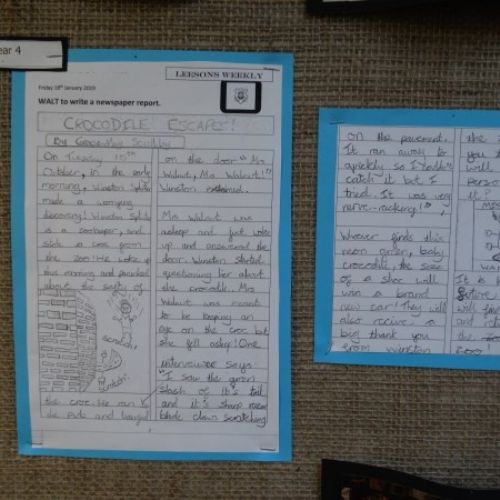 ear 4
LEESONS WEEKLY
Friday 18th January 2019
WALT to write a newspaper report.
CROCODILE ESCAPES!
By
On Tuesday 15th
October, in the early
morning, Winston
made a worrying
discovery! Winston
is a zookeeper, and
stole a croc from
the zoo! He woke up
this morning and panicked
about the safety of
scratch!
scratch!
the croc. He ran to
the Pub and banged
on the door "Mrs
Walnut, Mrs Walnut!"
Winston exclaimed.
Mrs Walnut was
asleep and just woke
up and answered the
door. Winston started
questioning her about
the crocodile. Mrs
Walnut was meant
to be keeping an
eye on the croc but
she fell asleep! One
interviewer says:
"I saw the green
slash of it's tail
and it's sharp
blade claws scratching
on the pavement.
It ran away so
quickly so I
catch it but I
tried. It was very
nerve-racking!",
Whoever finds this
neon green, baby
crocodile, the size
of a shoe will
win a brand
new car! They will
also receive a
big thank you
from Winston
the
you
will
Perso
it!
MIS
It is
future
will
and
the
zoo